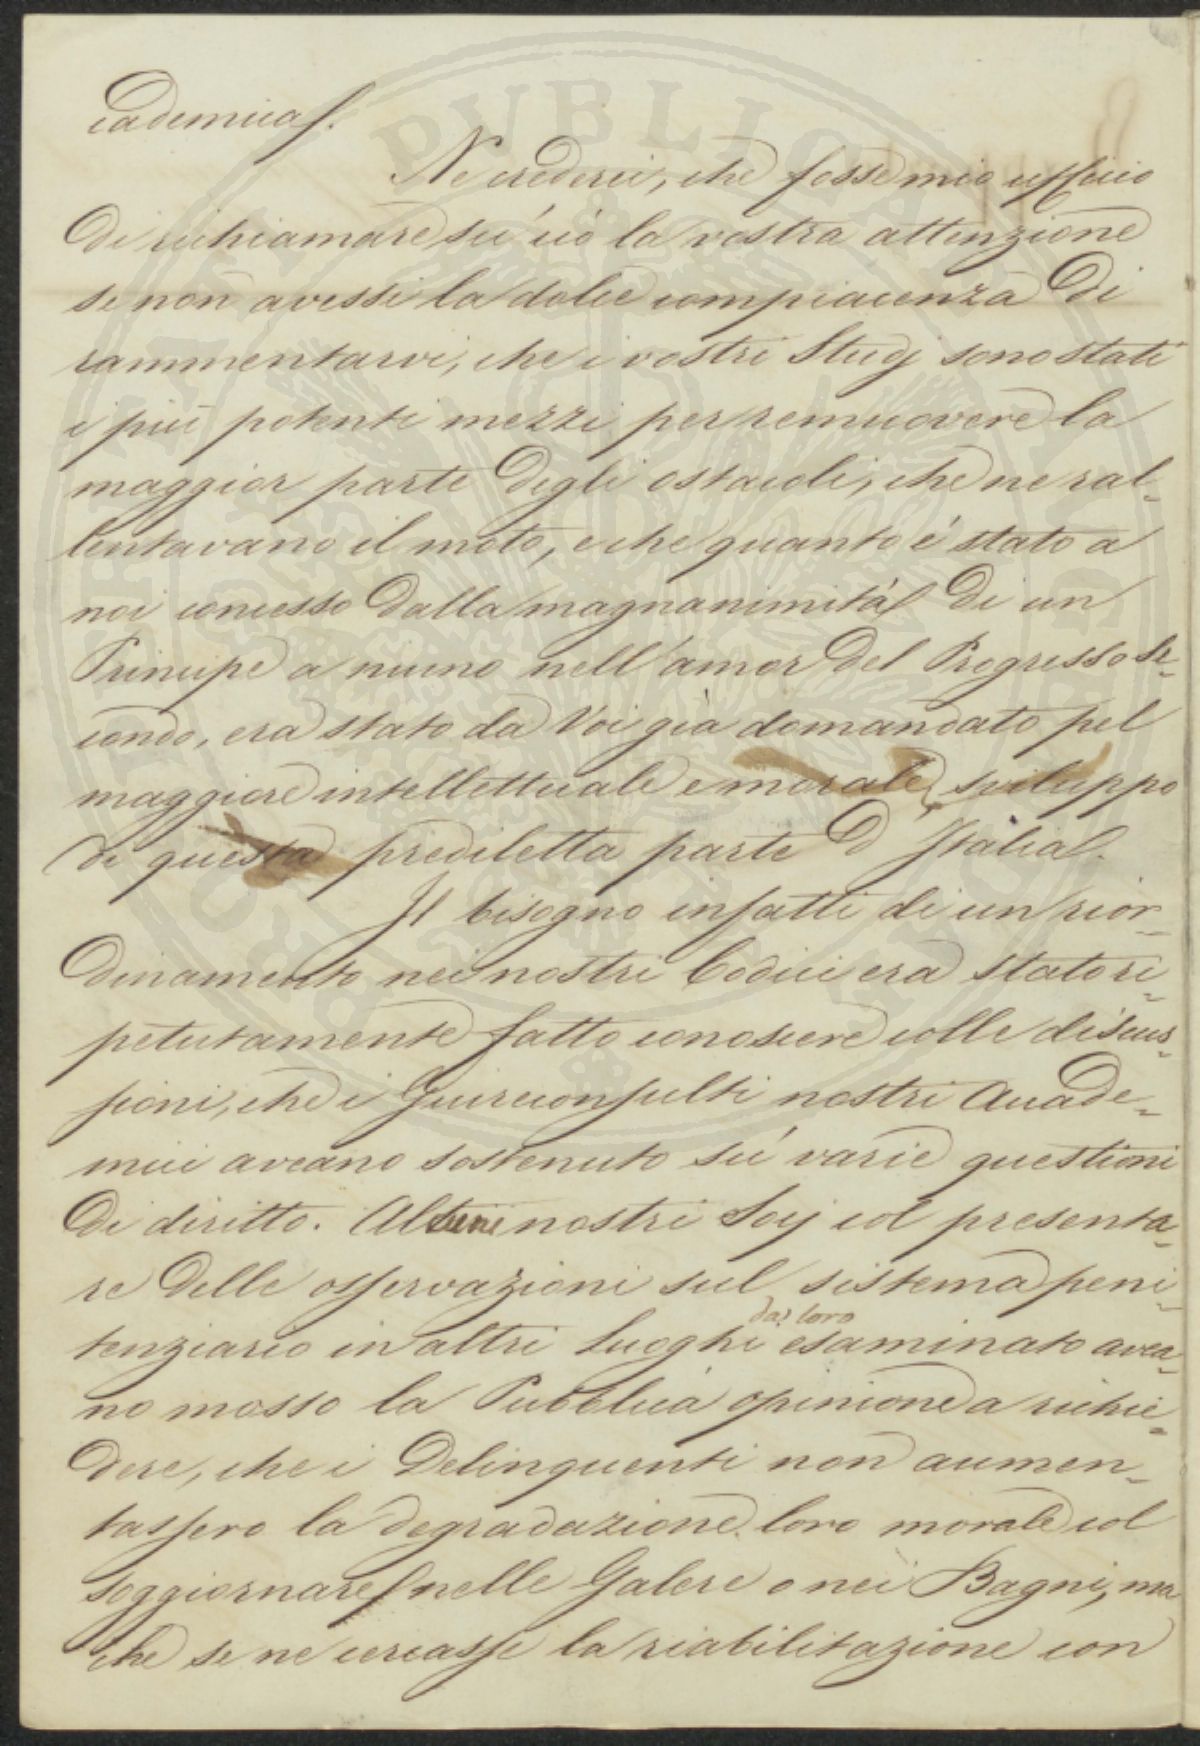 cademica.
Ne crederei, che fosse mio ufficio
di richiamare su' ciò la vostra attenzione
se non avessi la dolce compiacenza di
rammentarvi, che i vostri Studj sono stati
i più potenti mezzi per remuovere la
maggior parte degli ostacoli, che ne ral-
lentavano il moto, e che quanto è stato a
noi concesso dalla magnanimità di un
Principe a niuno nell'amor del Progresso se-
condo, era stato da Voi già domandato pel
maggiore intellettuale e morale sviluppo
di questa prediletta parte d'Italia.
Il bisogno infatti di un rior-
dinamento nei nostri Codici era stato ri-
petutamente fatto conoscere colle discus-
sioni, che i Giureconsulti nostri Accade-
mici aveano sostenuto su' varie questioni
di diritto. Altri nostri Socj col presenta-
re delle osservazioni sul sistema peni-
tenziario in altri luoghi da loro esaminato avea-
no mosso la Pubblica opinione a richie-
dere, che i Delinquenti non aumen-
tassero la degradazione loro morale col
soggiornare nelle Galere o nei Bagni, ma
che se ne cercasse la riabilitazione con
PROPRIETATI PUBLICAE